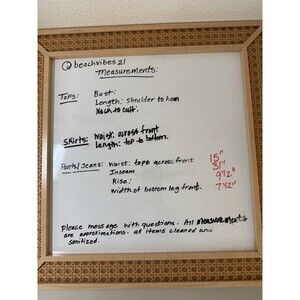 @beachvibes21
Measurements:
Tops: Bust:
Length: Shoulder to hem
Neck to cuff:
Skirts: Waist: across front
Length: top to bottom.
Pants/Jeans: Waist: tape across front 15"
Inseam 31"
Rise: 9 1/2"
Width of bottom leg front. 7 1/2"
Please message with questions. All measurements
are approximations. All items cleaned and
sanitized.